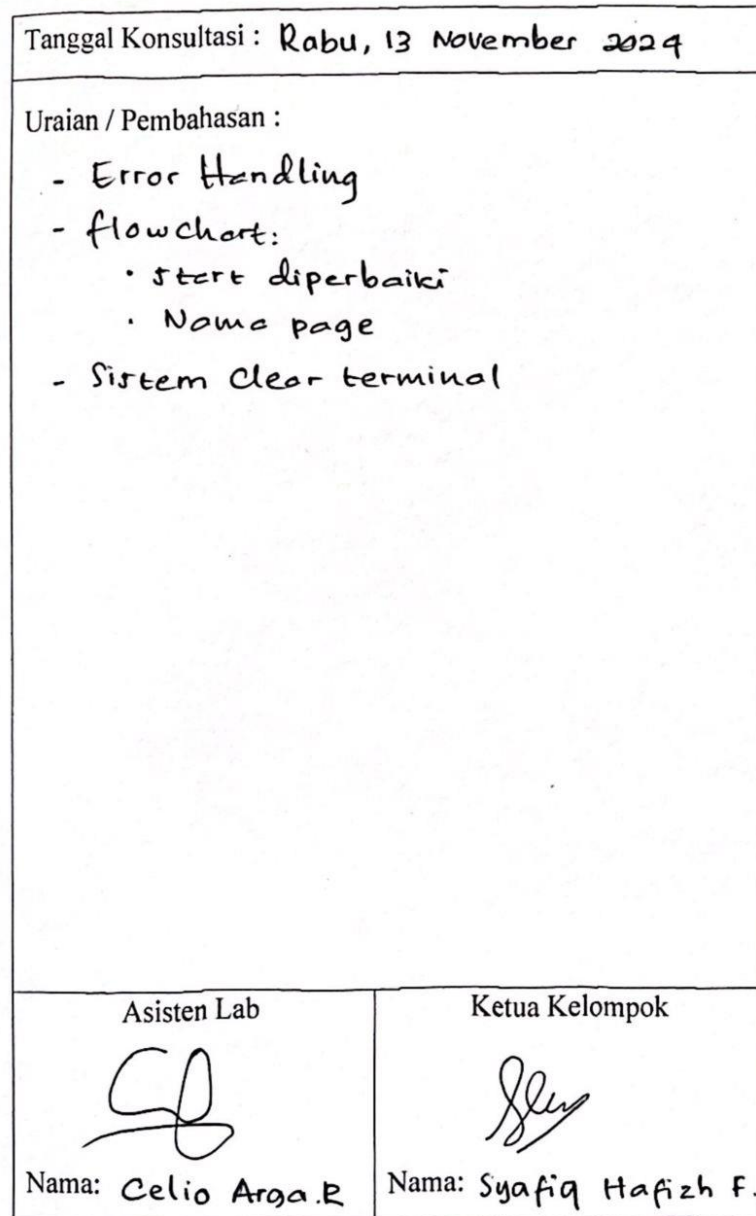 Tanggal Konsultasi : Rabu, 13 November 2024
Uraian / Pembahasan :
- Error Handling
- flowchart:
· start diperbaiki
· Nama page
- Sistem Clear terminal
Asisten Lab
Ketua Kelompok
Nama: Celio Arga.R
Nama: Syafiq Hafizh F.